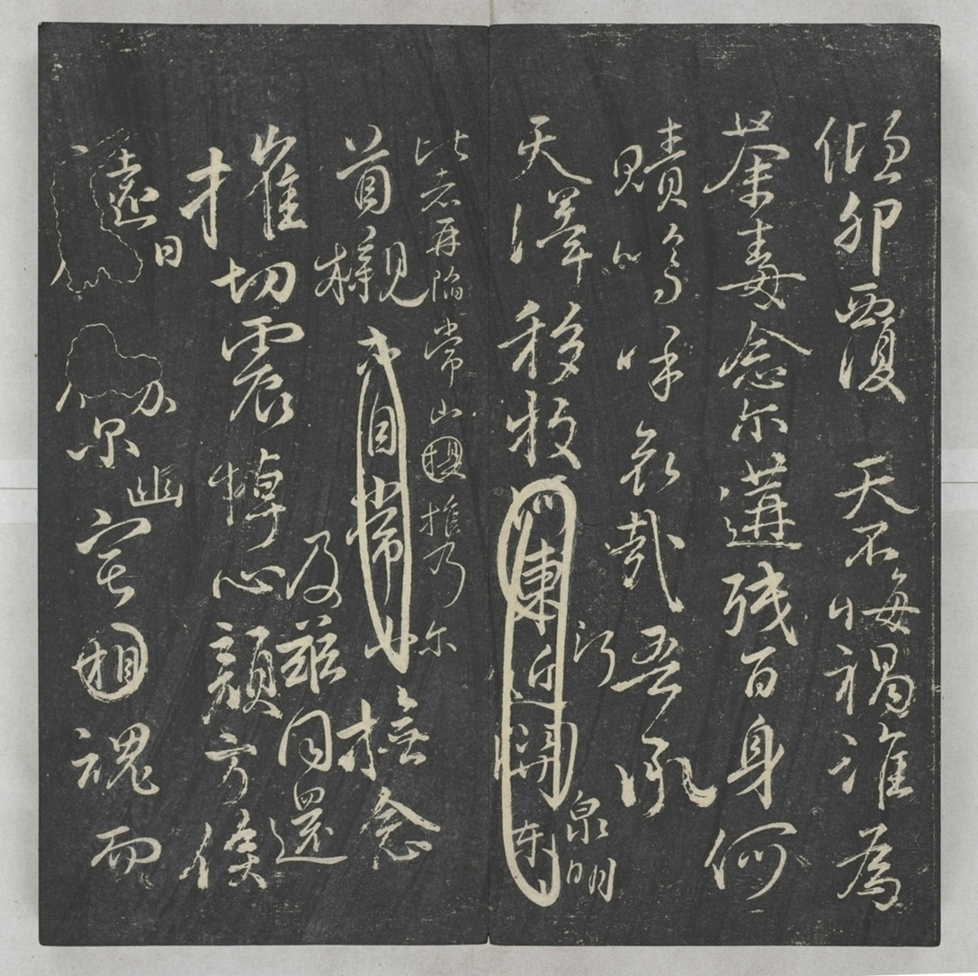 傾卵覆 天不悔禍誰為
荼毒念爾遘殘百身何
贖嗚呼哀哉吾承
天澤移牧河東近河關
泉明
比者再陷常山攜乃爾
首櫬亦自常撫念
及茲同還
摧切震悼心顏方俟
遠日
卜爾幽宅相魂而